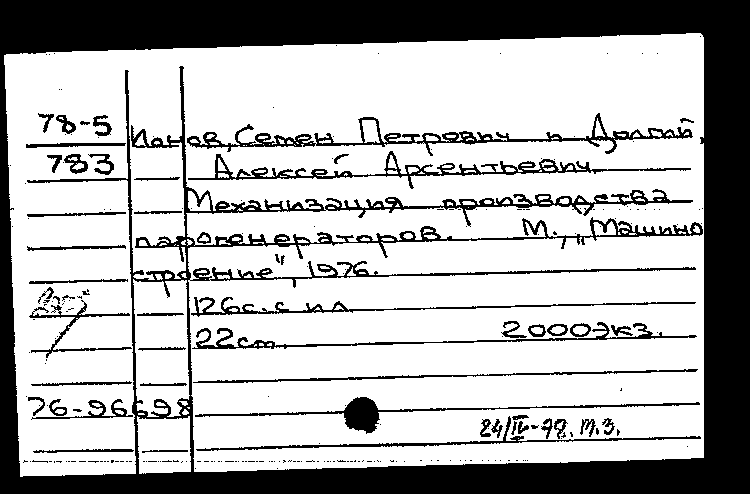 78-5 Ионов, Семен Петрович и Долгий,
783 Алексей Арсентьевич.
Механизация производства
парогенераторов. М., „Машино
строение", 1976.
126с. с ил.
22см. 2000экз.
76-96698
24/IV-78. м.З.